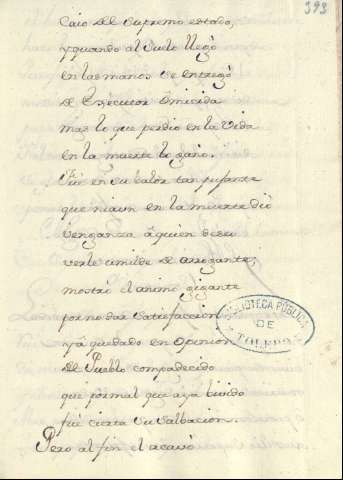 393
Caio del Supremo estado,
y quando al Suelo llegò
en las manos se entregò
de Executor Omicida
mas lo que perdio en la Vida
en la muerte lo gano.
Fuè en su balor tan pujante
que ni aun en la muerte diò
venganza à quien deseo
verle umilde de arrogante,
mostrò el animo gigante
por no dar Satisfaccion
ya quedado en Opinion
del Pueblo compadecido
que por mal que aya bivido
fue cierta su salbacion.
Pero al fin el acavò
BIBLIOTECA PÚBLICA
DE
TOLEDO